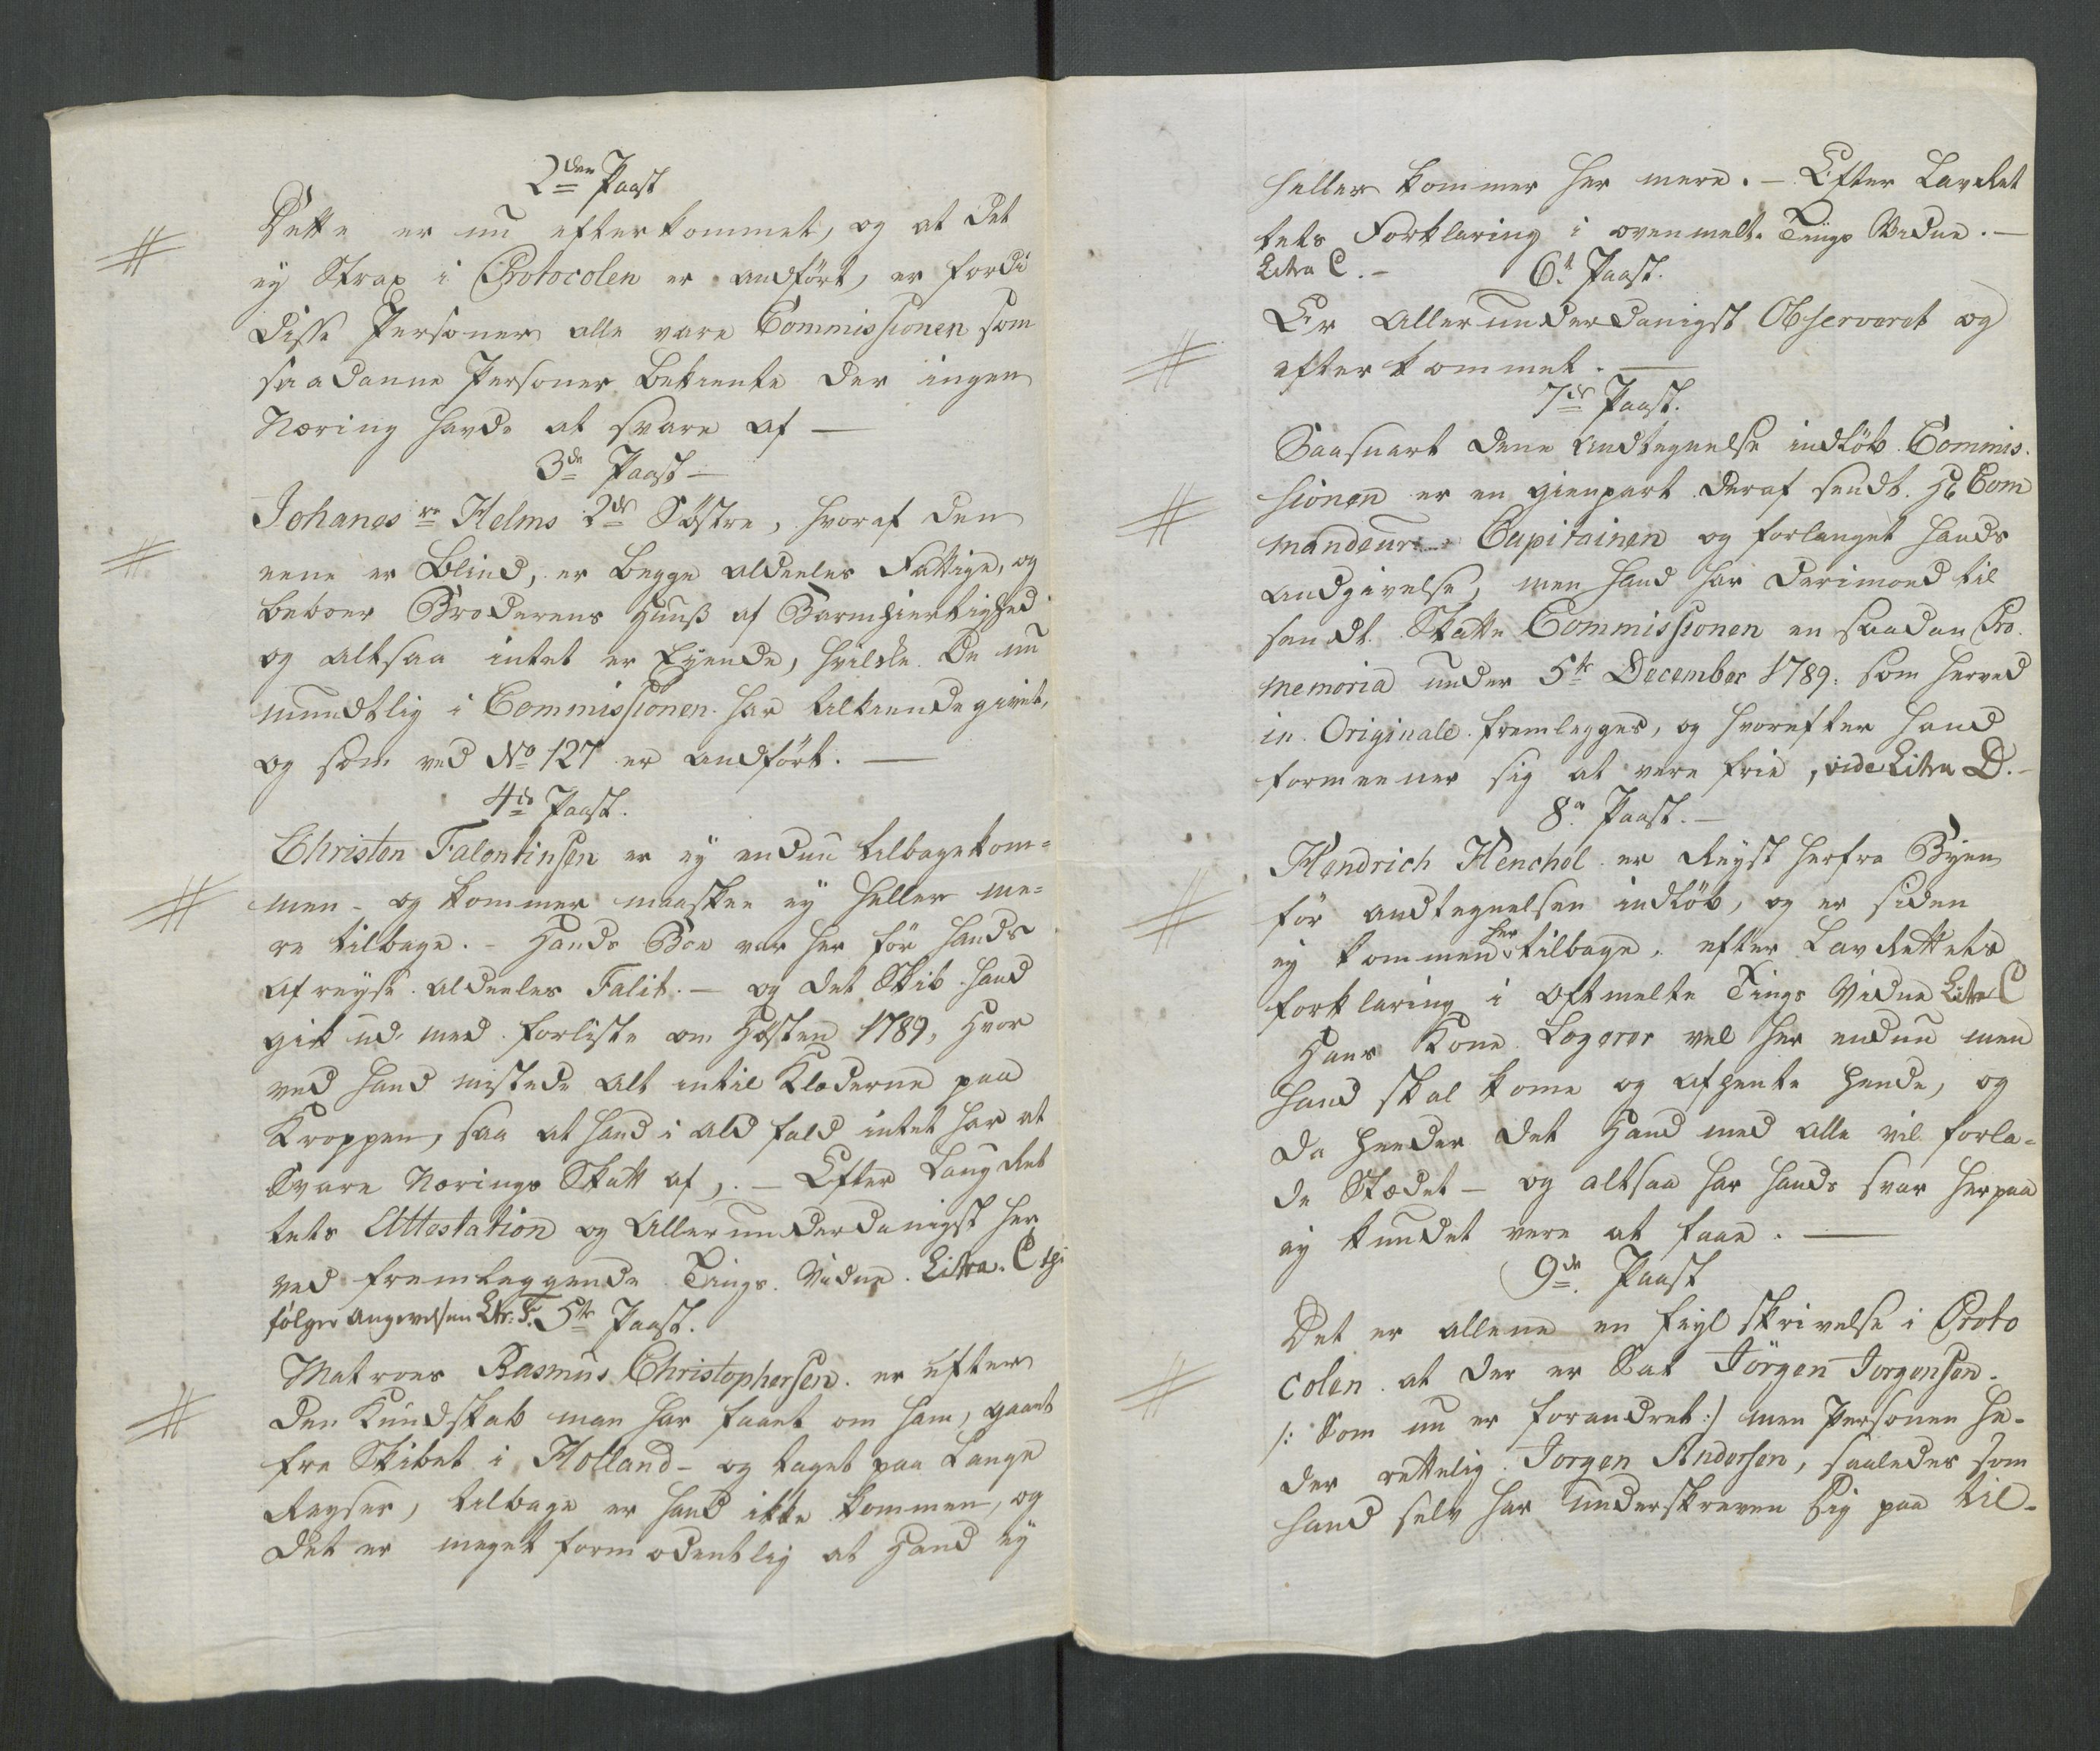 2den Paast
Dette er nu efterkommet, og at det
ey Strax i Protocolen er andført, er fordi
disse Personer alle vare Commissionen som
saadanne Personer bekiente der ingen
Næring havde at svare af —
3de Paast —
Johanes Helms 2de Søstre, hvoraf den
eene er Blind, er begge aldeeles Fattige, og
beboer Broderens Huuß af Barmhiertighed
og altsaa intet er Eyende, hvilcke De nu
mundtlig i Commissionen har tilkiendegivet,
og som ved No 127 er andført. —
4de Paast.
Christen Falentinsen er ey endnu tilbagekom=
men - og kommer maaskee ey heller me=
re tilbage. - Hands Boe var her før hands
afreyse aldeeles Falit. — og det Skib hand
gik ud med forliste om Høsten 1789, hvor
ved hand mistede alt intil Klæderne paa
Kroppen, saa at hand i ald fald intet har at
Svare Nærings Skatt af, . — Efter Laug Ret
tets Attestation og Allerunderdanigst her
ved fremlæggende Tings Vidne Litra. C
følger Angivelsen Ltr: F. 5te Paast.
Matroes Rasmus Christophersen er efter
den Kundskab man har faaet om ham, gaaet
fra Skibet i Holland - og taget paa Lange
Reyser, tilbage er hand ikke kommen, og
det er meget formodentlig at Hand ey
heller kommer her mere. — Efter LavRet
tets Forklaring i ovenmelte Tings Vidne. —
Litra C. — 6te Paast.
Er Allerunderdanigst Observeret og
efterkommet. —
7de Paast.
Saasnart denne Andtegnelse indløb Commis-
sionen er en gienpart deraf sendt Hr Com
mandeur Capitainen og forlanget hands
Andgivelse, men hand har derimod til
sendt Skatte Commissionen en saadan Pro
memoria under 5te December 1789: som herved
in Originale fremlegges, og hvorefter hand
formeener sig at vere frie, vide Litra D. -
8de Paast. —
Hendrich Henchel er Reyst herfra Byen
før andtegnelsen indløb, og er siden
ey kommen her tilbage. efter LavRettets
forklaring i oftmelte Tings Vidne Litra C
Hans Kone Logerer vel her endnu men
hand skal kome og afhente hende, og
da heeder det Hand med alle vil forla=
de Stædet — og altsaa har hands svar herpaa
ey kundet vere at faae. —
9de Paast
Det er allene en feyl skrivelse i Proto
colen at der er Sat Jörgen Jorgensen.
/: Som nu er forandret :/ men Personen he-
der rettelig Jorgen Andersen, saaledes som
hand selv har underskreven Sig paa til-